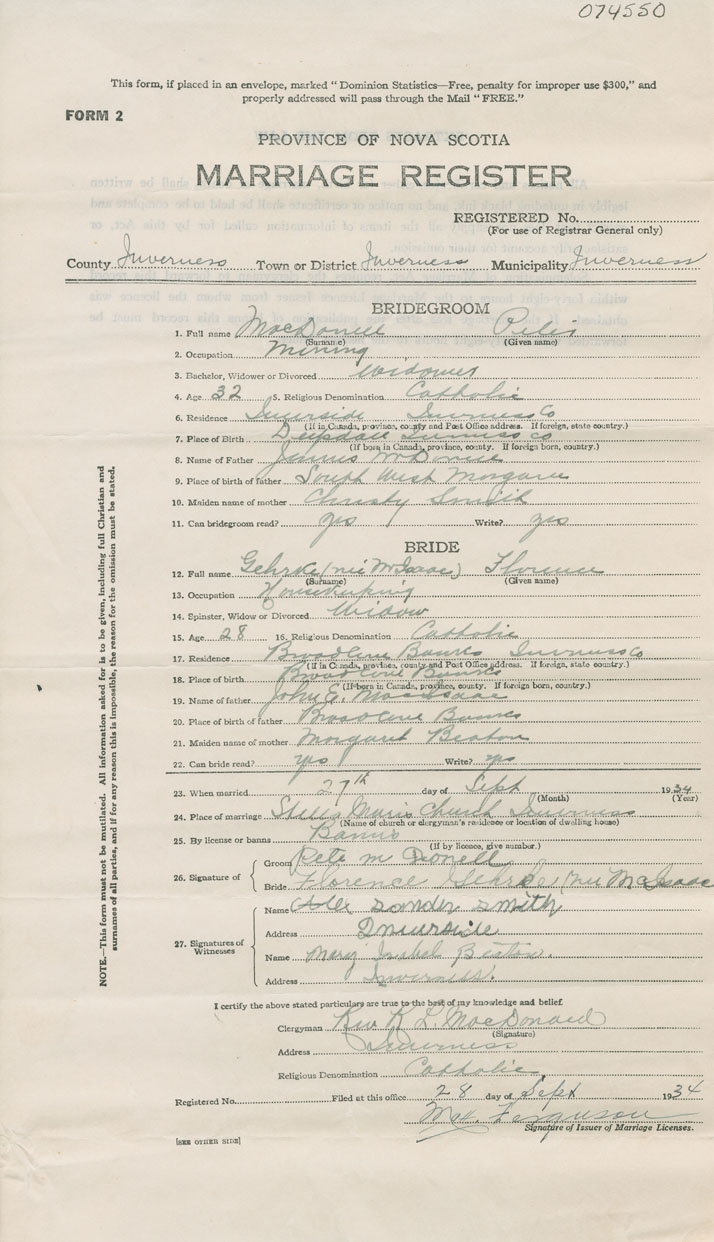 074550
This form, if placed in an envelope, marked "Dominion Statistics—Free, penalty for improper use $300," and
properly addressed will pass through the Mail "FREE."
FORM 2
PROVINCE OF NOVA SCOTIA
MARRIAGE REGISTER
REGISTERED No.
(For use of Registrar General only)
County Inverness Town or District Inverness Municipality Inverness
BRIDEGROOM
1. Full name MacDonell
(Surname) (Given name)
2. Occupation Mining
3. Bachelor, Widower or Divorced Widower
4. Age 32 5. Religious Denomination Catholic
6. Residence Inverside Inverness Co
(If in Canada, province, county and Post Office address. If foreign, state country.)
7. Place of Birth Deepdale Inverness Co
(If born in Canada, province, county. If foreign born, country.)
8. Name of Father
9. Place of birth of father South West Margaree
10. Maiden name of mother Christy Smith
11. Can bridegroom read? yes Write? yes
BRIDE
12. Full name Gehrke (nee McIsaac) Florence
(Surname) (Given name)
13. Occupation Housekeeping
14. Spinster, Widow or Divorced Widow
15. Age 28 16. Religious Denomination Catholic
17. Residence Broad Cove Banks Inverness Co
(If in Canada, province, county and Post Office address. If foreign, state country.)
18. Place of birth Broad Cove Banks
(If born in Canada, province, county. If foreign born, country.)
19. Name of father John E. MacIsaac
20. Place of birth of father Broad Cove Banks
21. Maiden name of mother Margaret Beaton
22. Can bride read? yes Write? yes
23. When married 27th day of Sept 1934
(Month) (Year)
24. Place of marriage Stella Maris Church Inverness
(Name of church or clergyman's residence or location of dwelling house)
25. By license or banns Banns
(If by licence, give number.)
26. Signature of Groom Pete McDonell
Bride Florence Gehrke (nee McIsaac
27. Signatures of Witnesses
Name Alex Sander Smith
Address Inverside
Name Mary Isabel Beaton.
Address Inverness.
I certify the above stated particulars are true to the best of my knowledge and belief.
Clergyman Rev K L. MacDonald
(Signature)
Address Inverness
Religious Denomination Catholic
Registered No. Filed at this office 28 day of Sept 1934
Ferguson
Signature of Issuer of Marriage Licenses.
[SEE OTHER SIDE]
NOTE.—This form must not be mutilated. All information asked for is to be given, including full Christian and
surnames of all parties, and if for any reason this is impossible, the reason for the omission must be stated.